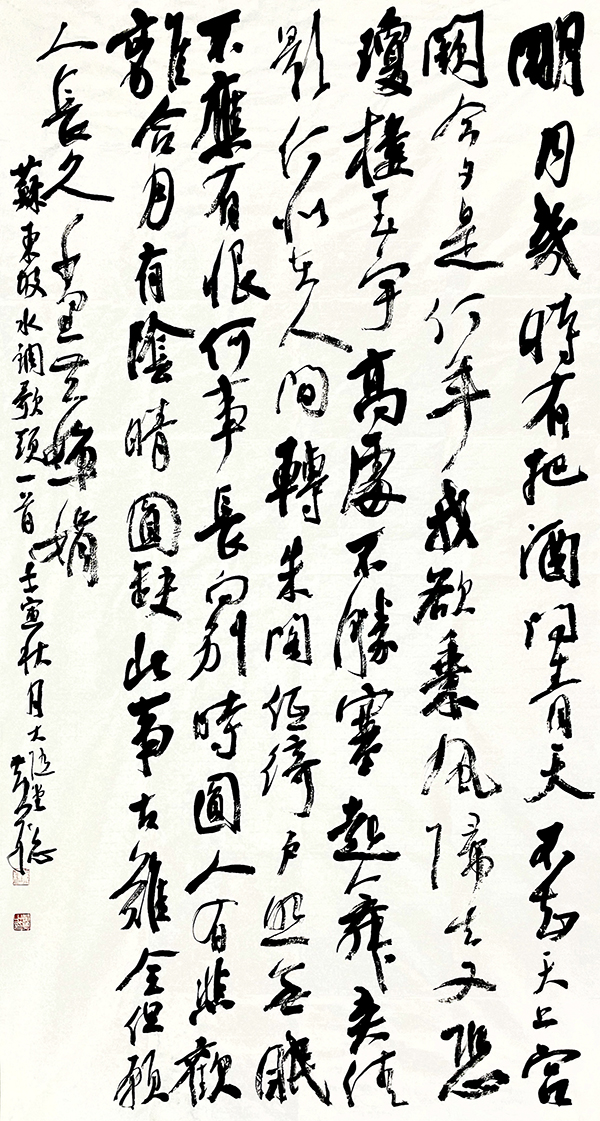 明月幾時有把酒問青天不知天上宮
闕今夕是何年我欲乘風歸去又恐
瓊樓玉宇高處不勝寒起舞弄清
影何似在人間轉朱閣低綺戶照無眠
不應有恨何事長向別時圓人有悲歡
離合月有陰晴圓缺此事古難全但願
人長久千里共嬋娟
蘇東坡水調歌頭一首壬寅秋月大隱堂